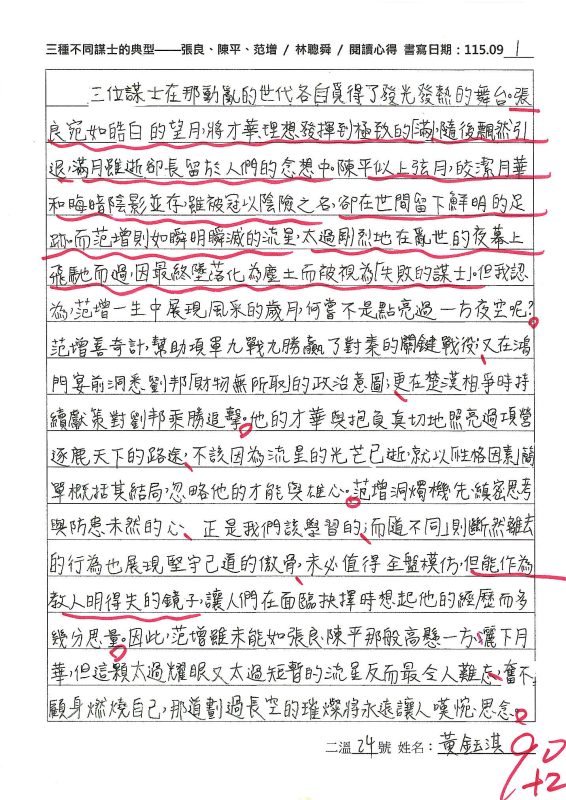 三種不同謀士的典型——張良、陳平、范增 / 林聰舜 / 閱讀心得 書寫日期：115.09 1
三位謀士在那動亂的世代各自覓得了發光發熱的舞台。張
良宛如皓白的望月，將才華理想發揮到極致的「滿」，隨後飄然引
退，滿月雖逝卻長留於人們的念想中。陳平似上弦月，皎潔月華
和晦暗陰影並存，雖被冠以陰險之名，卻在世間留下鮮明的足
跡。而范增則如瞬明瞬滅的流星，太過剛烈地在亂世的夜幕上
飛馳而過，因最終墜落化為塵土而被視為「失敗的謀士」。但我認
為，范增一生中展現風采的歲月，何嘗不是點亮過一方夜空呢？
范增喜奇計，幫助項軍九戰九勝贏了對秦的關鍵戰役，又在鴻
門宴前洞悉劉邦「財物無所取」的政治意圖，更在楚漢相爭時持
續獻策對劉邦乘勝追擊。他的才華與抱負真切地照亮過項營
逐鹿天下的路途，不該因為流星的光芒已逝，就以「性格因素」簡
單概括其結局，忽略他的才能與雄心。范增洞燭機先、縝密思考
與防患未然的心、正是我們該學習的，而「道不同」則斷然離去
的行為也展現堅守己道的傲骨，未必值得全盤模仿，但能作為
教人明得失的鏡子，讓人們在面臨抉擇時想起他的經歷而多
幾分思量。因此，范增雖未能如張良、陳平那般高懸一方，灑下月
華，但這顆太過耀眼又太過短暫的流星反而最令人難忘，奮不
顧身燃燒自己，那道劃過長空的璀燦將永遠讓人嘆惋、思念。
二溫 24 號 姓名：黃鈺淇
90
+2